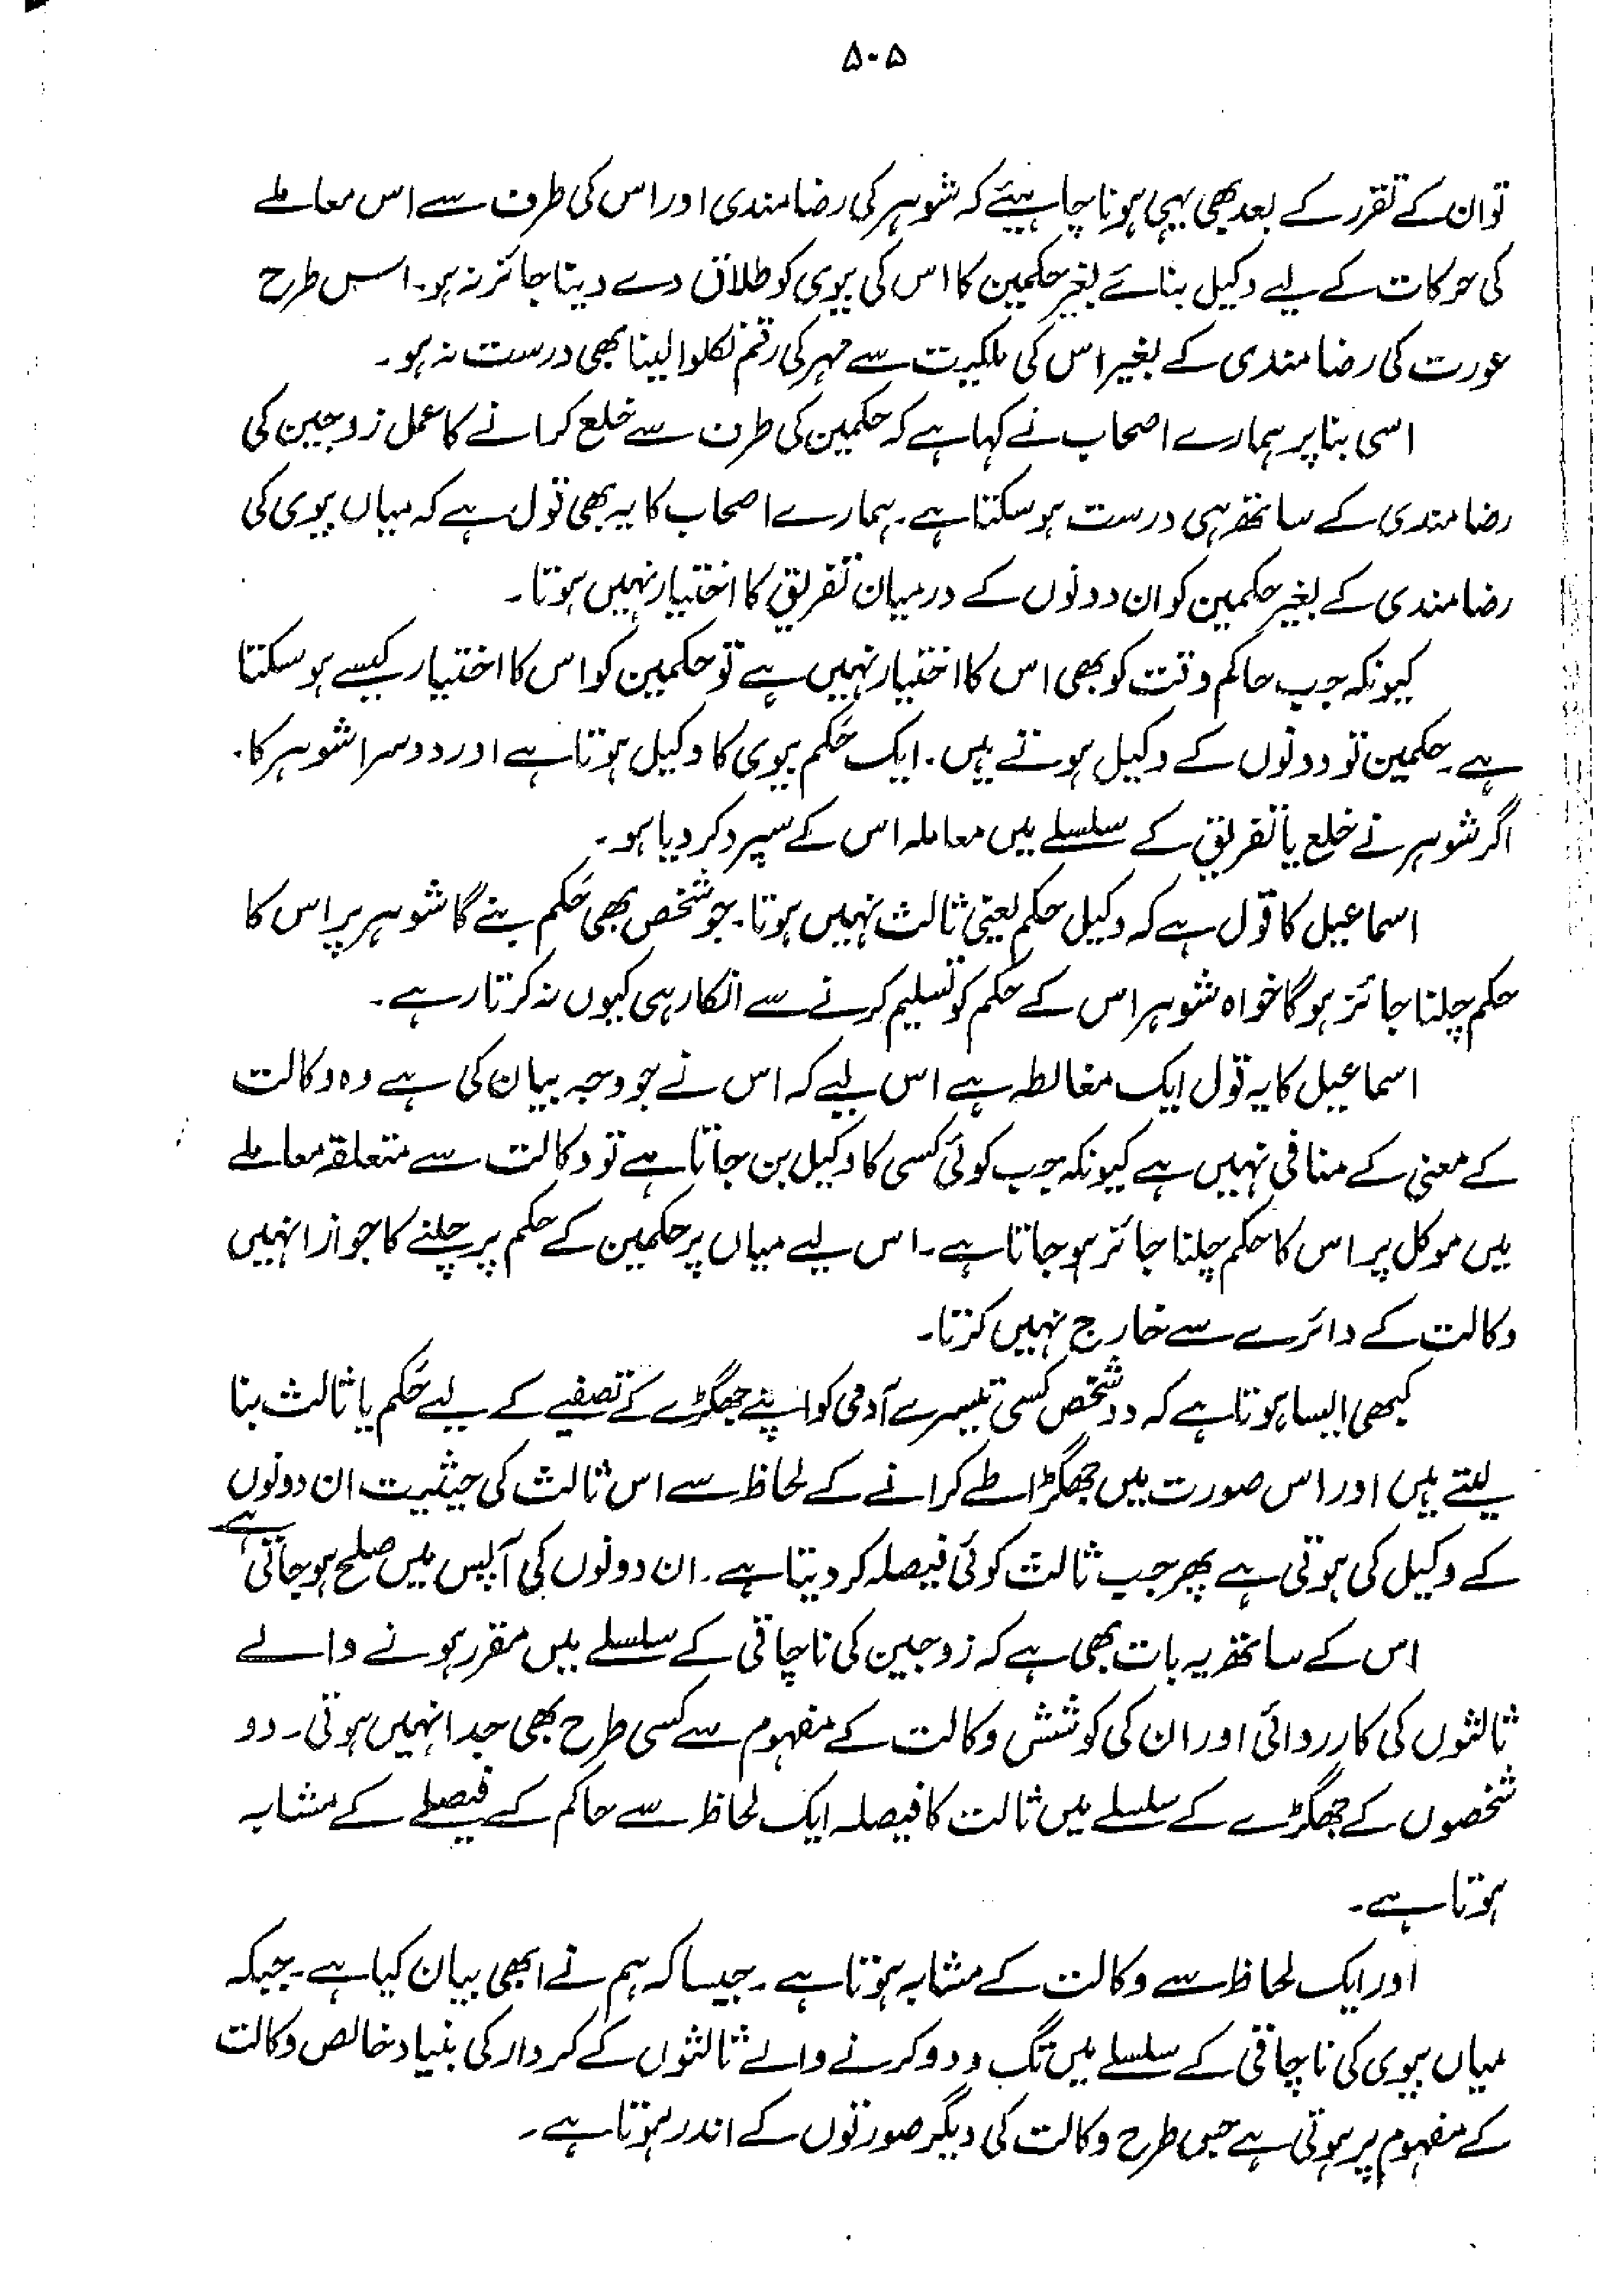 ۵۰۵
تو ان کے تقرر کے بعد بھی یہی ہونا چاہیئے کہ شوہر کی رضامندی اور اس کی طرف سے اس معاملے
کی حرکات کے لیے وکیل بنائے بغیر حکمین کا اس کی بیوی کو طلاق دے دینا جائز نہ ہو۔ اسی طرح
عورت کی رضامندی کے بغیر اس کی ملکیت سے مہر کی رقم نکلوا لینا بھی درست نہ ہو۔
اسی بنا پر ہمارے اصحاب نے کہا ہے کہ حکمین کی طرف سے خلع کرانے کا عمل زوجین کی
رضامندی کے ساتھ ہی درست ہو سکتا ہے۔ ہمارے اصحاب کا یہ بھی قول ہے کہ میاں بیوی کی
رضامندی کے بغیر حکمین کو ان دونوں کے درمیان تفریق کا اختیار نہیں ہوتا۔
کیونکہ جب حاکم وقت کو بھی اس کا اختیار نہیں ہے تو حکمین کو اس کا اختیار کیسے ہو سکتا
ہے۔ حکمین تو دونوں کے وکیل ہوتے ہیں۔ ایک حَکم بیوی کا وکیل ہوتا ہے اور دوسرا شوہر کا۔
اگر شوہر نے خلع یا تفریق کے سلسلے میں معاملہ اس کے سپرد کر دیا ہو۔
اسماعیل کا قول ہے کہ وکیل حکم یعنی ثالث نہیں ہوتا۔ جو شخص بھی حَکم بنے گا شوہر پر اس کا
حکم چلنا جائز ہو گا خواہ شوہر اس کے حکم کو تسلیم کرنے سے انکار ہی کیوں نہ کرتا رہے۔
اسماعیل کا یہ قول ایک مغالطہ ہے اس لیے کہ اس نے جو وجہ بیان کی ہے وہ وکالت
کے معنی کے منافی نہیں ہے کیونکہ جب کوئی کسی کا وکیل بن جاتا ہے تو وکالت سے متعلقہ معاملے
میں موکل پر اس کا حکم چلنا جائز ہو جاتا ہے۔ اس لیے میاں پر حکمین کے حکم پر چلنے کا جواز انہیں
وکالت کے دائرے سے خارج نہیں کرتا۔
کبھی ایسا ہوتا ہے کہ دو شخص کسی تیسرے آدمی کو اپنے جھگڑے کے تصفیے کے لیے حَکم یا ثالث بنا
لیتے ہیں اور اس صورت میں جھگڑا طے کرانے کے لحاظ سے اس ثالث کی حیثیت ان دونوں
کے وکیل کی ہوتی ہے پھر جب ثالث کوئی فیصلہ کر دیتا ہے۔ ان دونوں کی آپس میں صلح ہو جاتی ہے
اس کے ساتھ یہ بات بھی ہے کہ زوجین کی ناچاقی کے سلسلے میں مقرر ہونے والے
ثالثوں کی کارروائی اور ان کی کوشش وکالت کے مفہوم سے کسی طرح بھی جدا نہیں ہوتی۔ دو
شخصوں کے جھگڑے کے سلسلے میں ثالت کا فیصلہ ایک لحاظ سے حاکم کے فیصلے کے مشابہ
ہوتا ہے۔
اور ایک لحاظ سے وکالت کے مشابہ ہوتا ہے۔ جیسا کہ ہم نے ابھی بیان کیا ہے۔ جبکہ
میاں بیوی کی ناچاقی کے سلسلے میں تگ و دو کرنے والے ثالثوں کے کردار کی بنیاد خالص وکالت
کے مفہوم پر ہوتی ہے جس طرح وکالت کی دیگر صورتوں کے اندر ہوتا ہے۔